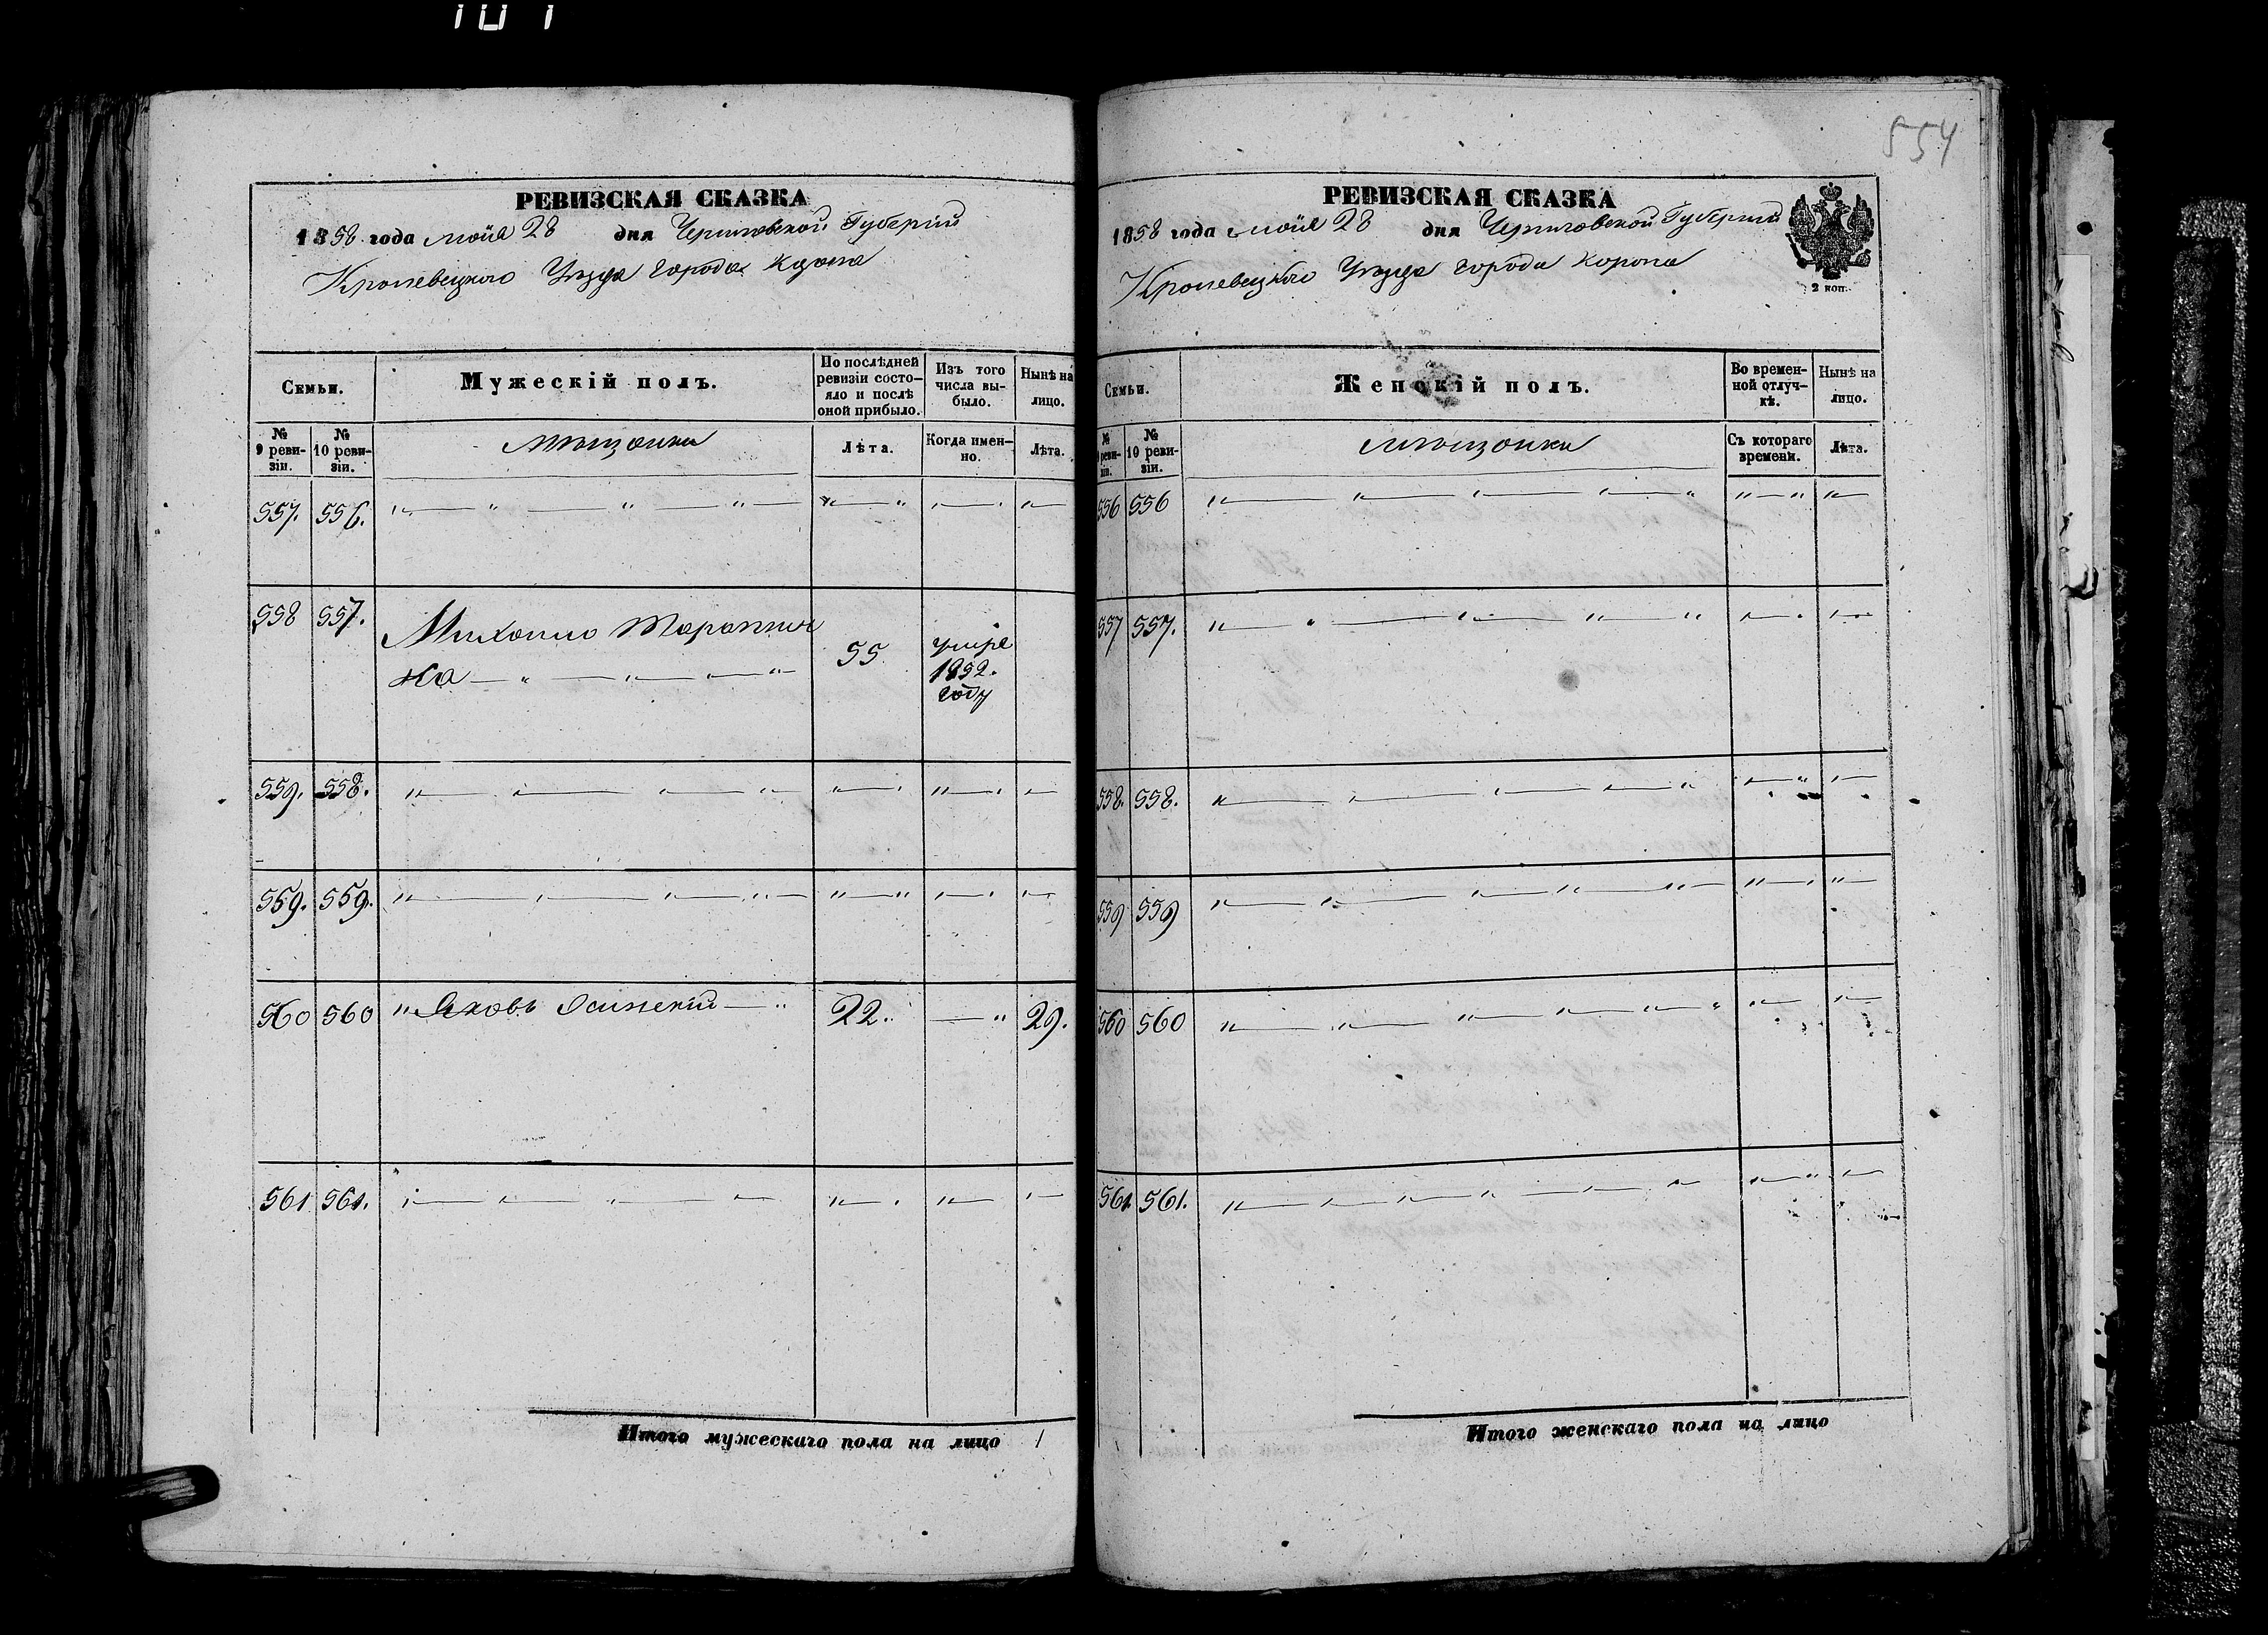 554
РЕВИЗСКАЯ СКАЗКА
1858 года маія 28 дня Черниговской Губерніи
Кролевецкого Уезда города Коропа
Семьи.
Мужескій полъ.
По послѣдней ревизіи состояло и послѣ оной прибыло.
Изъ того числа выбыло.
Нынѣ на лицо.
№ 9 ревизіи.
№ 10 ревизіи.
Мѣщанки
Лѣта.
Когда именно.
Лѣта.
557. 556.
558 557. Михаило Таранни
ка 55 умре 1852. году
559. 558.
559. 559.
560 560 Яковъ Осинскій 22. 29.
561 561.
Итого мужескаго пола на лицо 1
РЕВИЗСКАЯ СКАЗКА
1858 года маія 28 дня Черниговской Губерніи
Кролевецкого Уезда города Коропа
2 коп.
Семьи.
Женскій полъ.
Во временной отлучкѣ.
Нынѣ на лицо.
№ 9 ревизіи.
№ 10 ревизіи.
мѣщанки
Съ котораго времени.
Лѣта.
556 556
557 557.
558. 558.
559 559
560 560
561. 561.
Итого женскаго пола на лицо